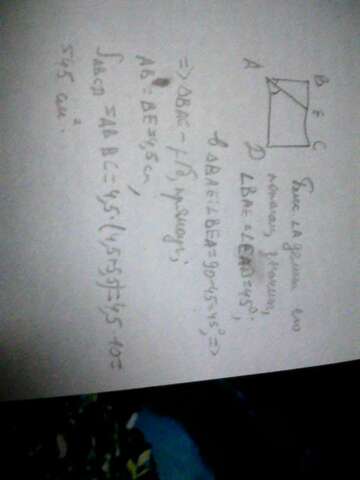 B
E
C
A
D
Бис ∠A делит его
пополам, значит,
∠BAE = ∠EAD = 45°;
в ΔBAE: ∠BEA = 90-45 = 45°, =>
=> ΔBAC - р/б, прямоуг;
AB = BE = 4,5 см,
S ABCD = AB BC = 4,5·(4,5+5,5) = 4,5·10 =
= 45 см².